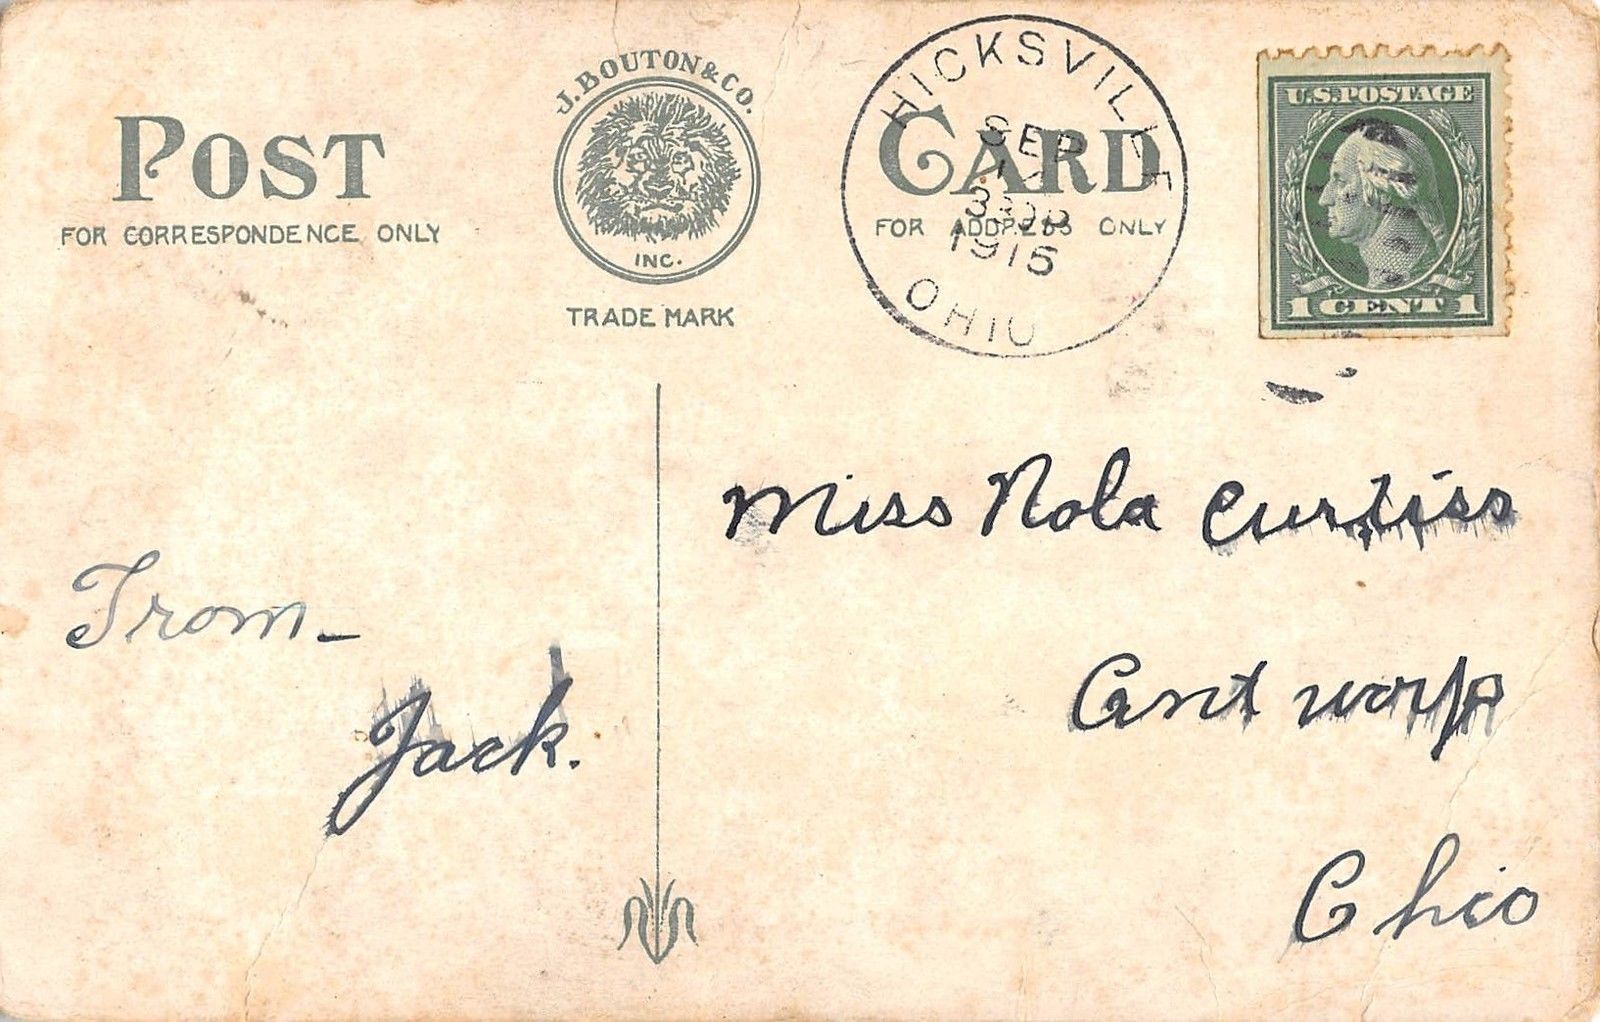 POST
FOR CORRESPONDENCE ONLY
J. BOUTON & CO.
INC.
TRADE MARK
CARD
FOR ADDRESS ONLY
HICKSVILLE
SEP
1915
OHIO
U.S. POSTAGE
1 CENT 1
Miss Nola Curtiss
Antwerp
Ohio
From-
Jack.